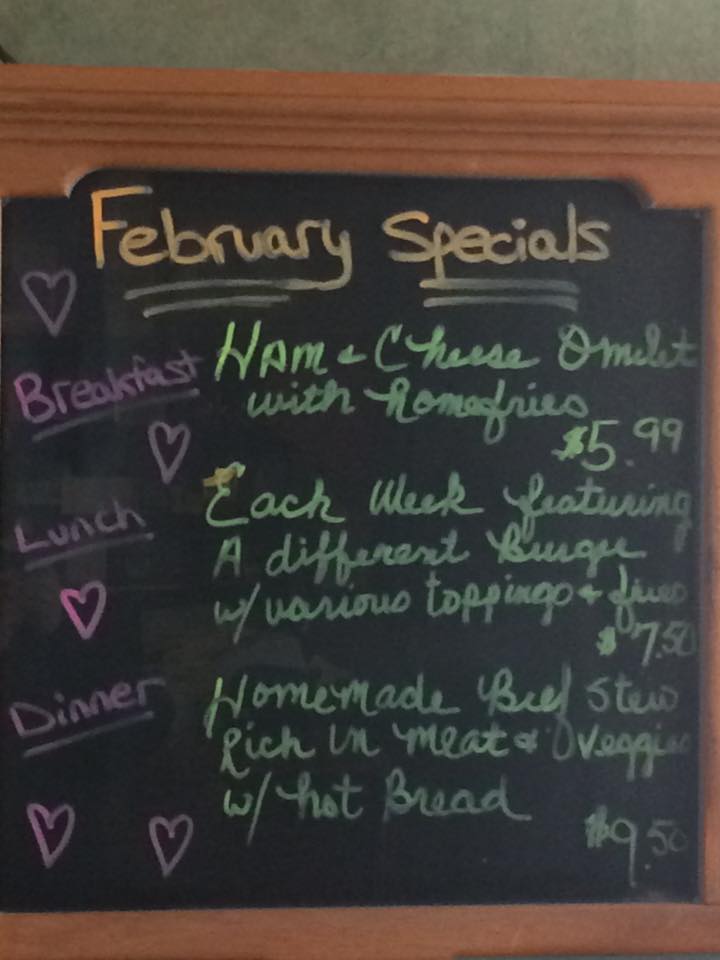 February Specials
Breakfast
HAM & Cheese Omelet
with homefries
$5.99
Lunch
Each Week featuring
A different Burger
w/ various toppings & fries
$7.50
Dinner
Homemade Beef Stew
Rich in meat & Veggies
w/ hot Bread
$9.50